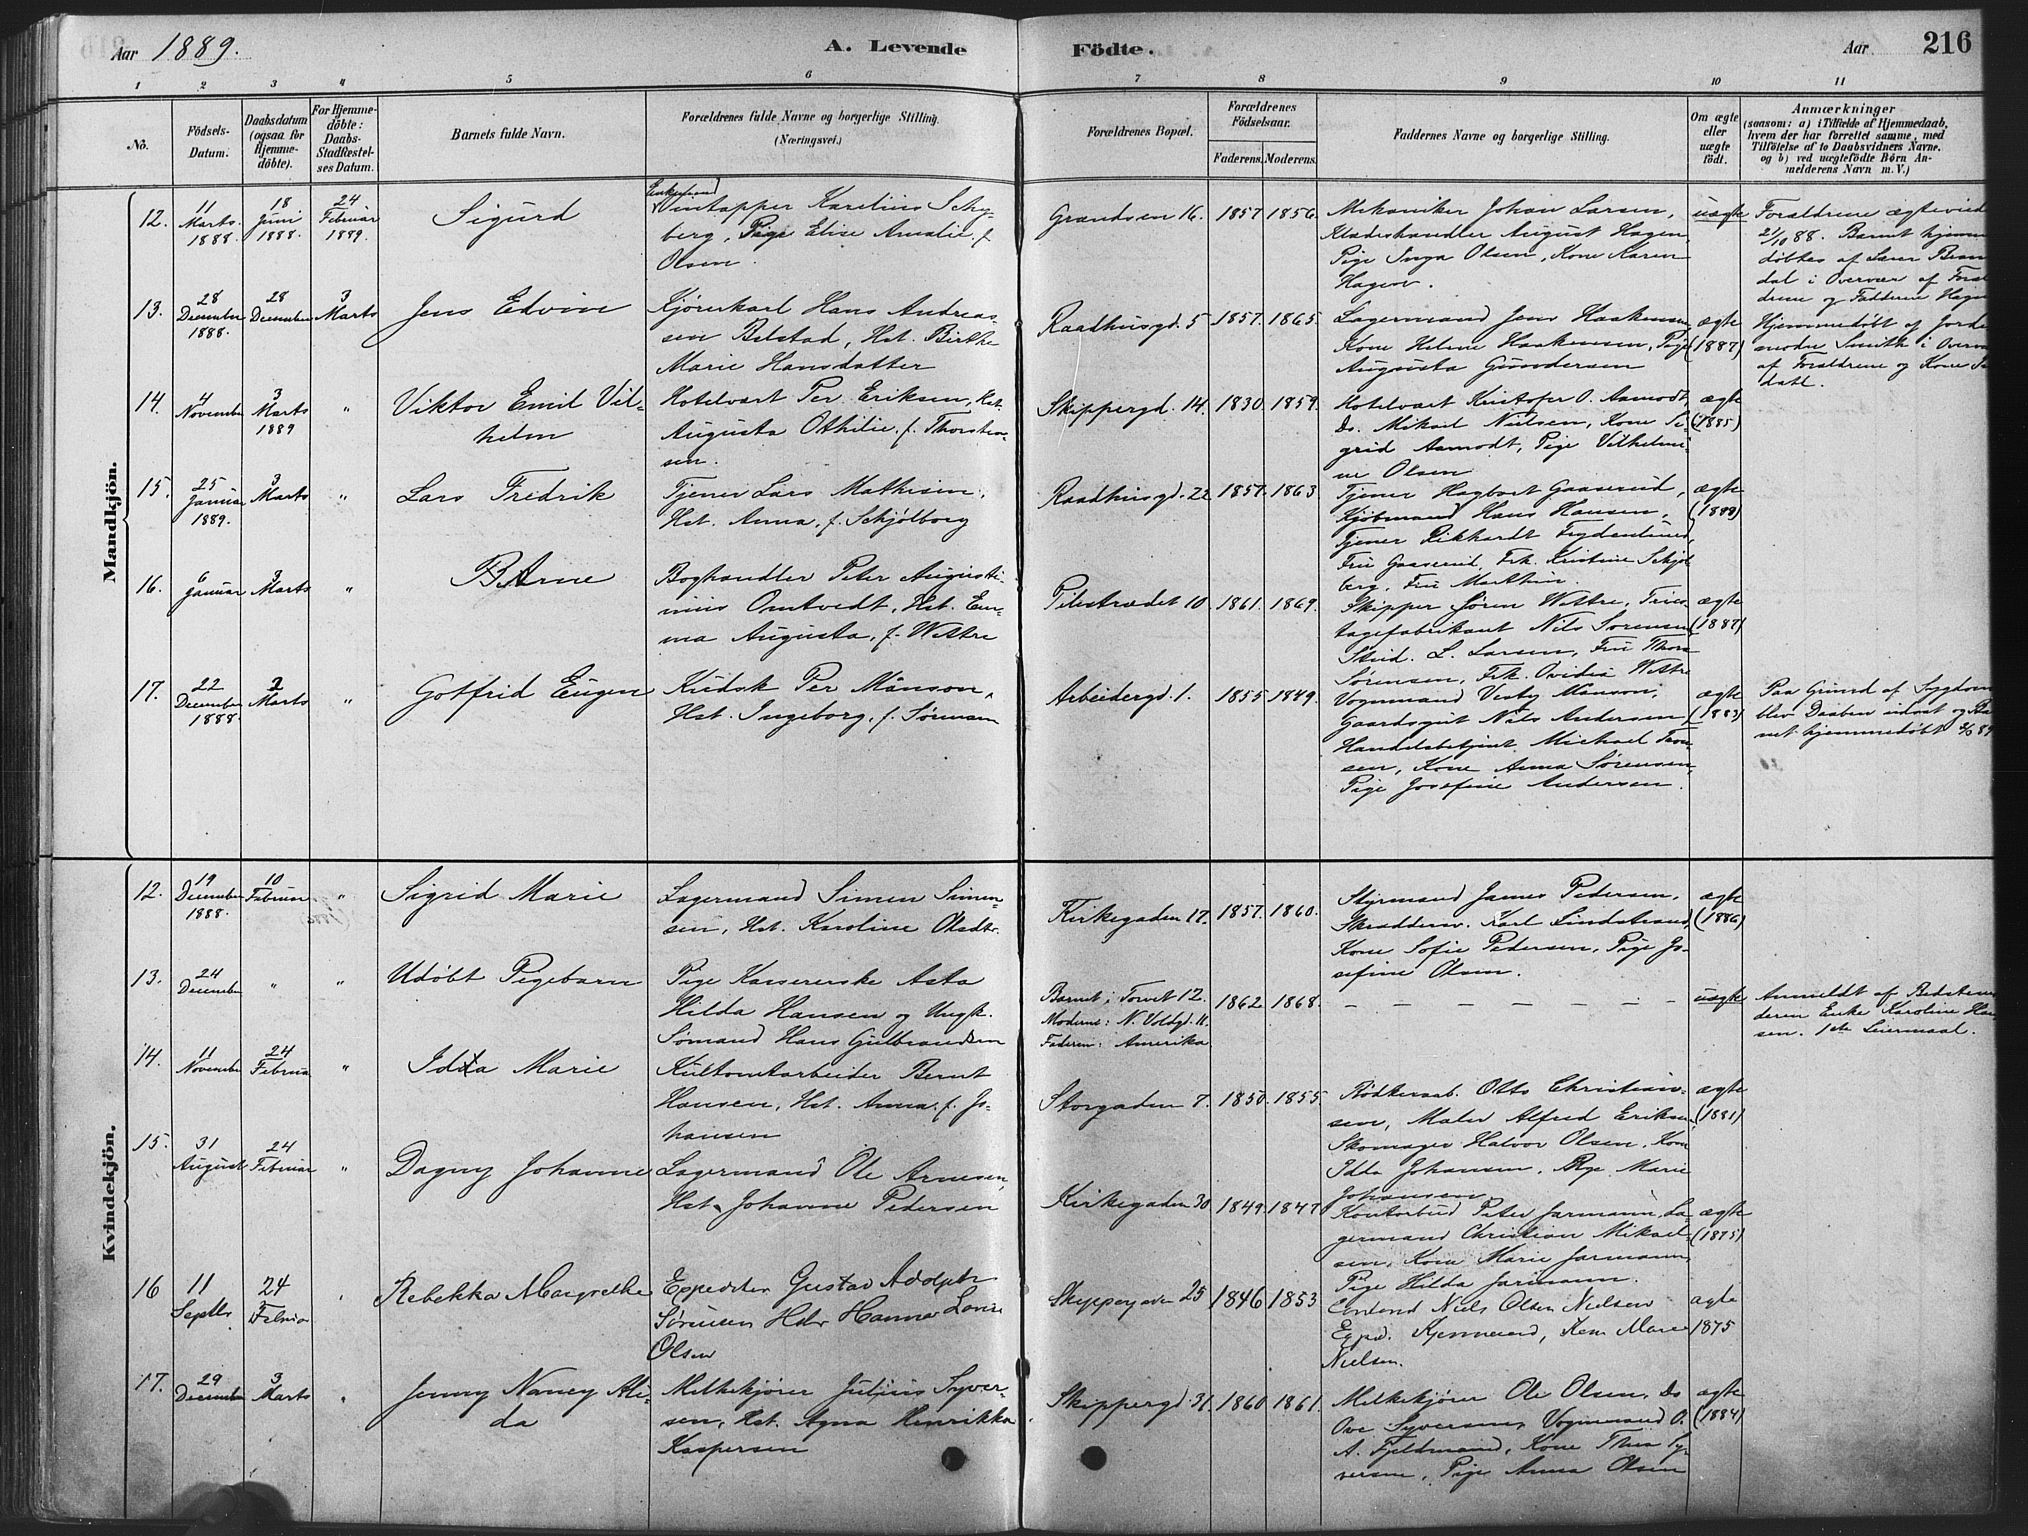 Aar 1889.
A. Levende
Födte.
Aar
216
1
2
3
4
5
6
7
8
9
10
11
No.
Födsels-
Datum.
Daabsdatum
(ogsaa for
Hjemme-
döbte).
For Hjemme-
döbte:
Daabs-
Stadfæstel-
ses Datum.
Barnets fulde Navn.
Forældrenes fulde Navne og borgerlige Stilling
(Næringsvei.)
Forældrenes Bopæl.
Forældrenes
Födselsaar.
Faderens.
Moderens.
Faddernes Navne og borgerlige Stilling.
Om ægte
eller
uægte
födt.
Anmærkninger
(saasom: a) i Tilfælde af Hjemmedaab,
hvem der har forrettet samme, med
Tilföielse af to Daabsvidners Navne,
og b) ved uægtefödte Börn An-
melderens Navn m. V.)
Mandkjön.
12.
11
Marts
1888.
18
Juni
1888.
24
Februar
1889.
Sigurd
Enkemand
Vintapper Karelius Schy-
berg, Pige Elise Amalie f.
Olsen.
Grændsen 16.
1857
1856.
Mekaniker Johan Larsen,
Klædeshandler August Hagen,
Pige Inga Olsen, Kone Karen
Hagen.
uægte
Forældrene ægteviede
21/10 88. Barnet hjemme
döbtes af Lærer
dal i Overvær af Foræl
drene og Fadderne Hagen
13.
28
December
1888.
28
December
3
Marts
Jens Edvin
Kjörerkarl Hans Andreas
sen Belstad, Hst. Birthe
Marie Hansdatter
Raadhusgd. 5
1857.
1865.
Lagermand Jens Haakensen,
Kone Helene Haakensen, Pige
Augusta Gundersen
ægte
(1887)
Hjemmedöbt af Jorde
moder Smith i Overvær
af Forældrene og Kone
datt.
14.
4
November
3
Marts
1889
"
Viktor Emil Vil-
helm
Hotelvært Per Eriksen, Hst.
Augusta Othilie, f. Thorsten-
sen.
Skippergd. 14.
1830.
1859.
Hotelvært Kristofer O. Aamodt,
Ds. Mikael Nielsen, Kone Si-
grid Aamodt, Pige Vilhelmi-
ne Olsen
ægte
(1885)
15.
25
Januar
1889.
3
Marts
"
Lars Fredrik
Tjener Lars Mathisen,
Hst. Anna, f. Schjölborg
Raadhusgd. 22
1857.
1863.
Tjener Hagbart Gaaserud,
Kjöbmand Hans Hansen,
Tjener Rikhardt Frydenlund,
Fru Gaaserud, Frk. Kristine Schjöl
berg, Fru Marthin.
ægte
(1888)
16.
6
Januar
3
Marts
"
Arne
Boghandler Peter Augusti-
nius Omtvedt, Hst. Em-
ma Augusta, f. Wettre
Pilestrædet 10.
1861.
1869.
Skipper Sören Wettre, Trico-
tagefabrikant Nils Sörensen,
Stud. L. Larsen, Fru Thora
Sörensen, Frk. Ovidia Wettre
ægte
(1887)
17.
22
December
1888.
3
Marts
"
Gotfrid Eugen
Kudsk Per Månson,
Hst. Ingeborg, f. Sörensen
Arbeidergd. 1.
1855
1849.
Vognmand Månson,
Gaardsgut Nils Andersen,
Handelsbetjent Michael Tron-
sen, Kone Anna Sörensen,
Pige Josefine Andersen.
ægte
(1883)
Paa Grund af Sygdom
blev Daaben udsat og Bar
net hjemmedöbt
Kvindekjön.
12.
19
December
1888.
10
Februar
"
Sigrid Marie
Lagermand Simen Simen-
sen, Hst. Karoline Olsdtr.
Kirkegaden 17.
1857.
1860.
Styrmand James Pedersen,
Skrædderm. Karl Lindstrand,
Kone Sofie Pedersen, Pige Jo-
sefine Olsen.
ægte
(1886)
13.
24
December
"
"
Udöbt Pigebarn
Pige Kassererske Asta
Hilda Hansen og Ungk.
Sömand Hans Gulbrandsen
Barnet: Torvet 12.
Moderen: N. Voldgd. 11.
Faderen: Amerika
1862
1868.
uægte
Anmeldt af Bedstemo
deren Enke Karoline Han
sen. 1ste Leiermaal.
14.
11
November
24
Februar
"
Idda Marie
Kultomtarbeider Bernt
Hansen, Hst. Anna, f. Jo-
hansen
Storgaden 7.
1850.
1855.
Rödkersv. Otto Christian-
sen, Maler Alfred Eriksen,
Skomager Halvor Olsen, Kone
Idda Johansen, Pige Marie
Johansen.
ægte
(1881)
15.
31
August
24
Februar
"
Dagny Johanne
Lagermand Ole Arnesen,
Hst. Johanne Pedersen
Kirkegaden 30
1849.
1847
Kontorbud Peter Jarmann, La-
germand Christian Mikael-
sen, Kone Marie Jarmann,
Pige Hilda Jarmann.
ægte
(1875)
16
11
Septbr
24
Februar
Rebekka Margrethe
Expeditør Gustav Adolph
Sörensen Hstr Hanna Lovise
Olsen
Skippergaden 25
1846
1853
Niels Olsen Nielsen
Expd. Kone Marie
Nielsen.
ægte
1875
17.
29
December
3
Marts
Jenny Nancy Ali-
da
Melkekjörer Julius Syver-
sen, Hst. Agna Henrikka
Kaspersen
Skippergd. 31.
1860
1861.
Melkekjörer Ole Olsen, Ds
Ove Syversen, Vognmand O.
A. Fjeldmand, Kone Thea Sy-
versen, Pige Anna Olsen
ægte
(1884)